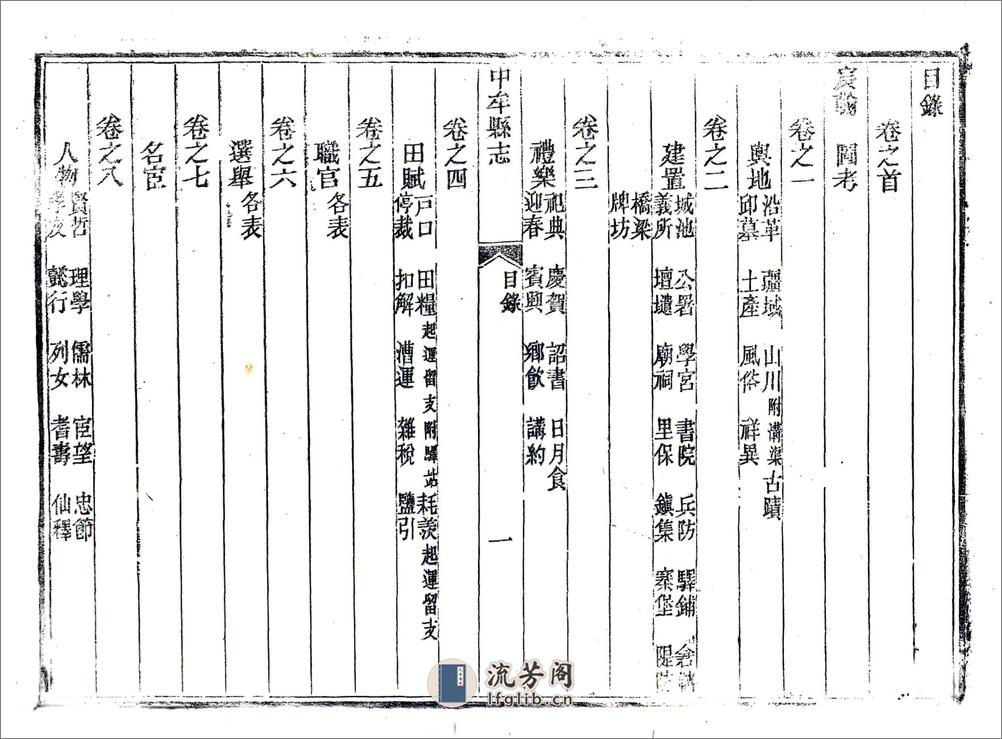 目錄
卷之首
宸翰 圖考
卷之一
輿地 沿革 疆域 山川 附溝渠 古蹟
邱墓 土產 風俗 祥異
卷之二
建置 城池 公署 學宮 書院 兵防 驛鋪
義所 壇壝 廟祠 里保 鎮集 寨堡
橋梁
牌坊
卷之三
禮樂 祀典 慶賀 詔書 日月食
迎春 賓興 鄉飲 講約
中牟縣志 目錄 一
卷之四
田賦 戶口 田糧 起運留支 附驛站 耗羨 起運留支
停裁 扣解 漕運 雜稅 鹽引
卷之五
職官 各表
卷之六
選舉 各表
卷之七
名宦
卷之八
人物 賢哲 理學 儒林 宦望 忠節
孝友 懿行 列女 耆壽 仙釋
流芳阁
lfglib.cn